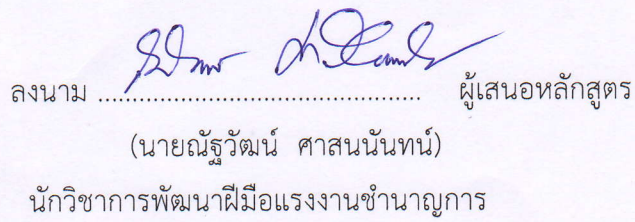 ลงนาม ................................................ ผู้เสนอหลักสูตร
(นายณัฐวัฒน์ ศาสนนันทน์)
นักวิชาการพัฒนาฝีมือแรงงานชำนาญการ